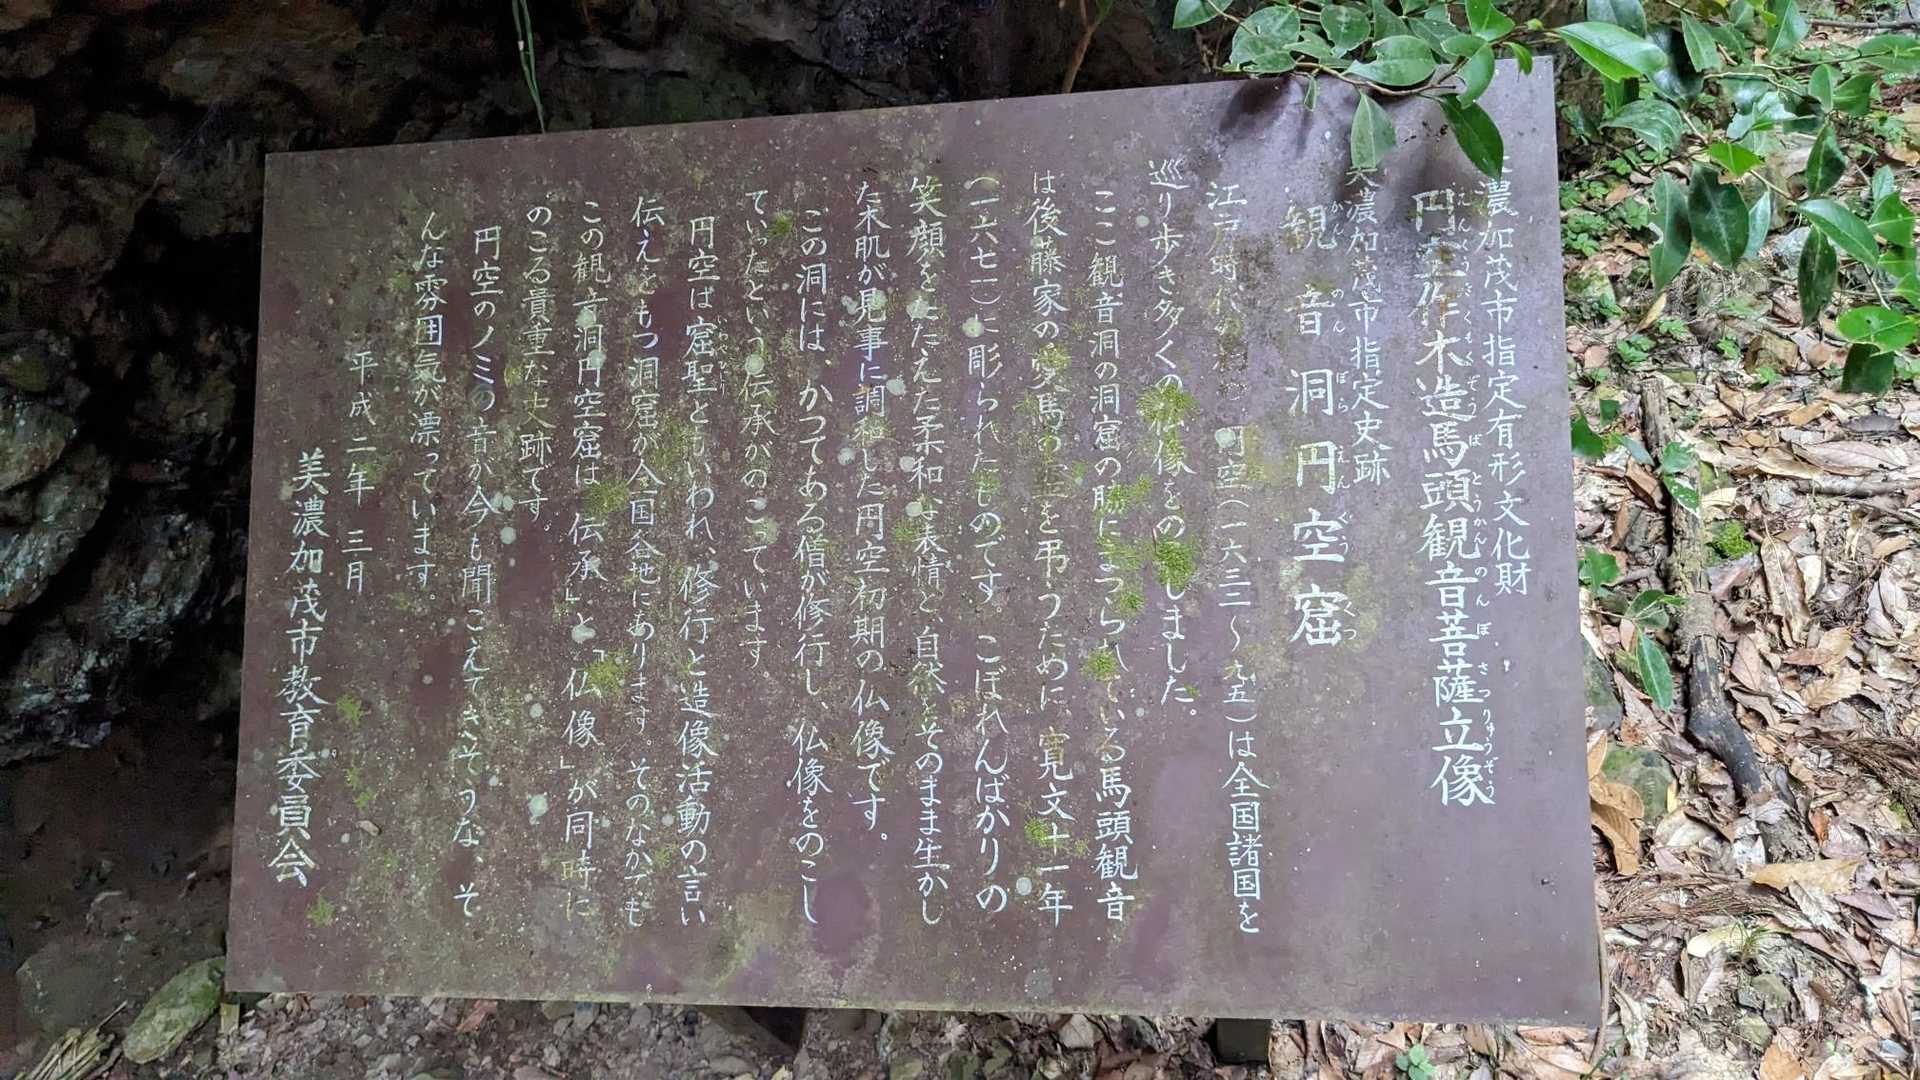 濃加茂市指定有形文化財
円空作木造馬頭観音菩薩立像
えんくうさくもくぞうばとうかんのんぼさつりゅうぞう
濃加茂市指定史跡
観音洞円空窟
かんのんぼらえんくうくつ
江戸時代の 円空(一六三二〜九五)は全国諸国を
巡り歩き多くの仏像をのこしました。
ここ観音洞の洞窟の脇にまつられている馬頭観音
は後藤家の愛馬の霊を弔うために、寛文十一年
(一六七一)に彫られたものです。こぼれんばかりの
笑顔をたたえた柔和な表情と、自然をそのまま生かし
た木肌が見事に調和した円空初期の仏像です。
この洞には、かつてある僧が修行し、仏像をのこし
ていったという伝承がのこっています
円空は窟聖ともいわれ、修行と造像活動の言い
伝えをもつ洞窟が全国各地にあります。そのなかでも
この観音洞円空窟は「伝承」と「仏像」が同時に
のこる貴重な史跡です。
円空のノミの音が今も聞こえてきそうな、そ
んな雰囲気が漂っています。
平成二年 三月
美濃加茂市教育委員会